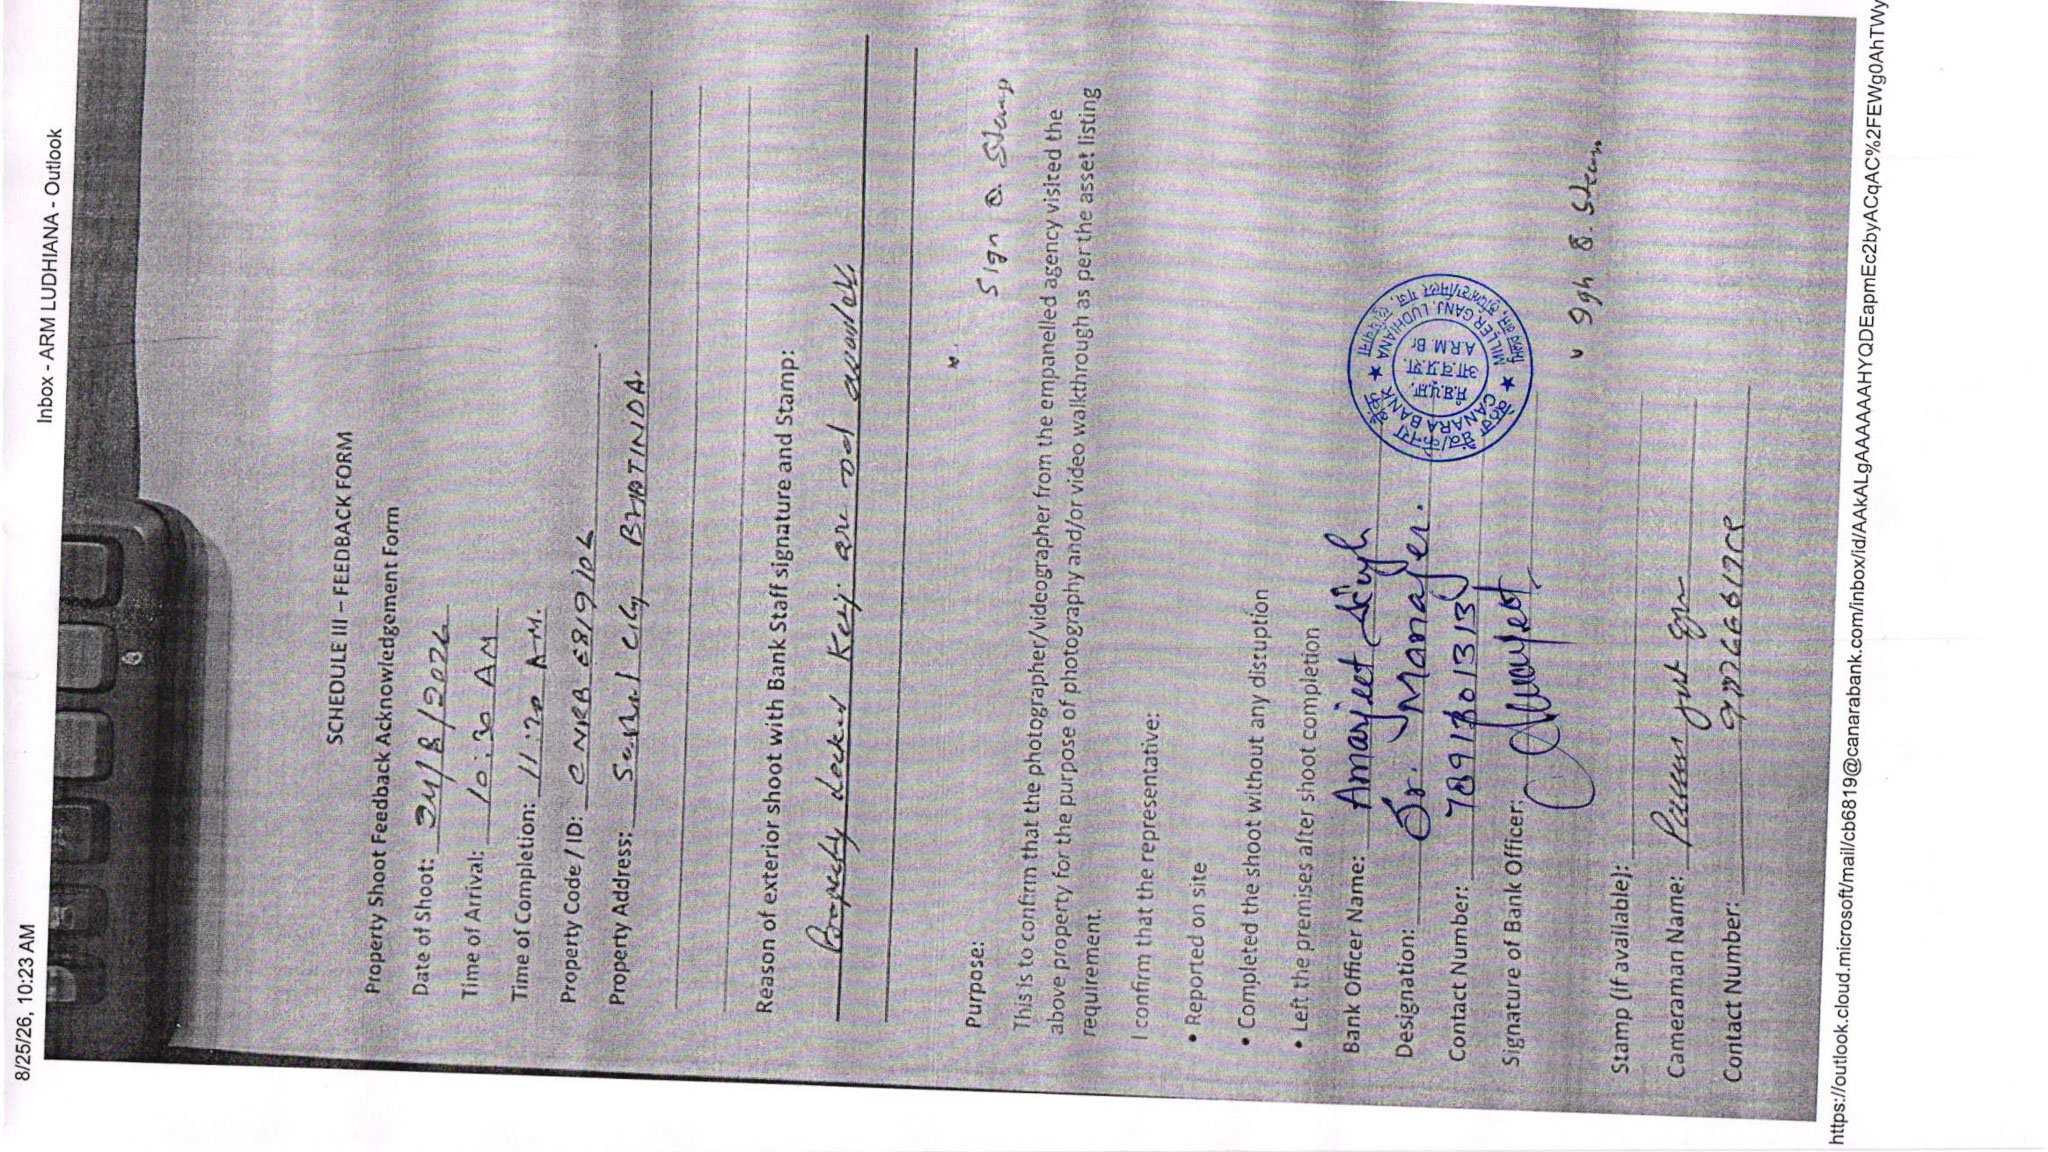 8/25/26, 10:23 AM
Inbox - ARM LUDHIANA - Outlook
SCHEDULE III – FEEDBACK FORM
Property Shoot Feedback Acknowledgement Form
Date of Shoot: 24/8/2026
Time of Arrival: 10:30 AM
Time of Completion: 11:20 AM.
Property Code / ID: CNRB
Property Address: City BHATINDA.
Reason of exterior shoot with Bank Staff signature and Stamp:
Property Locked Keys are not available
Purpose:
Sign & Stamp
This is to confirm that the photographer/videographer from the empanelled agency visited the
above property for the purpose of photography and/or video walkthrough as per the asset listing
requirement.
I confirm that the representative:
• Reported on site
• Completed the shoot without any disruption
• Left the premises after shoot completion
Bank Officer Name: Amarjeet Singh
Designation: Sr. Manager.
Contact Number: 7891801313
Signature of Bank Officer: Amarjeet
केनरा बैंक
CANARA BANK
A.R.M. Br
MILLER GANJ, LUDHIANA
& Stamp
Stamp (if available):
Cameraman Name:
Contact Number:
https://outlook.cloud.microsoft/mail/cb6819@canarabank.com/inbox/id/AAkALgAAAAAAHYQDEapmEc2byACqAC%2FEWg0AhTWy